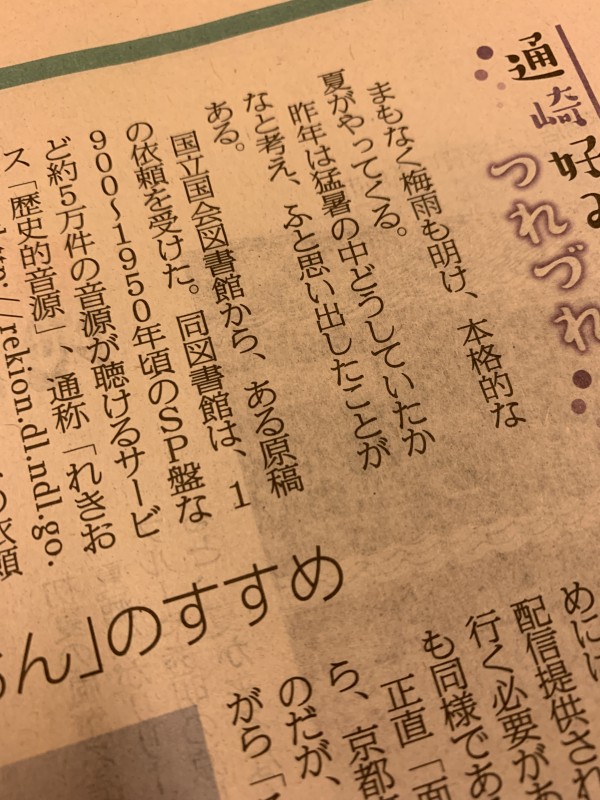 通崎好み
つれづれ
まもなく梅雨も明け、本格的な
夏がやってくる。
昨年は猛暑の中どうしていたか
なと考え、ふと思い出したことが
ある。
国立国会図書館から、ある原稿
の依頼を受けた。同図書館は、1
900〜1950年頃のSP盤な
ど約5万件の音源が聴けるサービ
ス「歴史的音源」、通称「れきお
://rekion.dl.ndl.go.
の依頼
ん」のすすめ
めには
配信提供され
行く必要があ
も同様であ
正直「面
ら、京都
のだが、
がら「